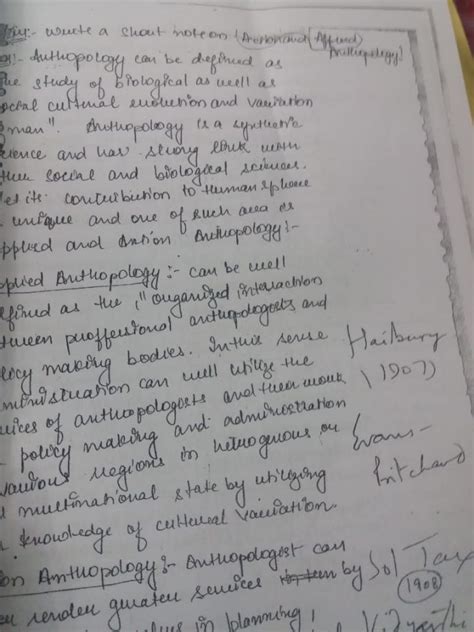 write a short note on (Action and Applied) Anthropology?
Anthopology can be defined as
the study of biological as well as
social cultural evolution and variation
man". Anthopology is a synthetic
science and has strong link with
other social and biological sciences.
its contribution to human sphere
unique and one of such area is
applied and Action Anthopology:-
applied Anthopology:- can be well
defined as the, "organized interaction
between proffessional anthopologists and
policy making bodies. In this sense
administration can well utilize the
services of anthopologists and their work
policy making and administration
various regions in
multinational state by utilizing
knowledge of cultural variation.
Haibury
(1907)
Evans-
Pritchard
Action Anthopology:- Anthopologist can
render greater services by Sol Tax
(1908)
in planning
Vidyarthi